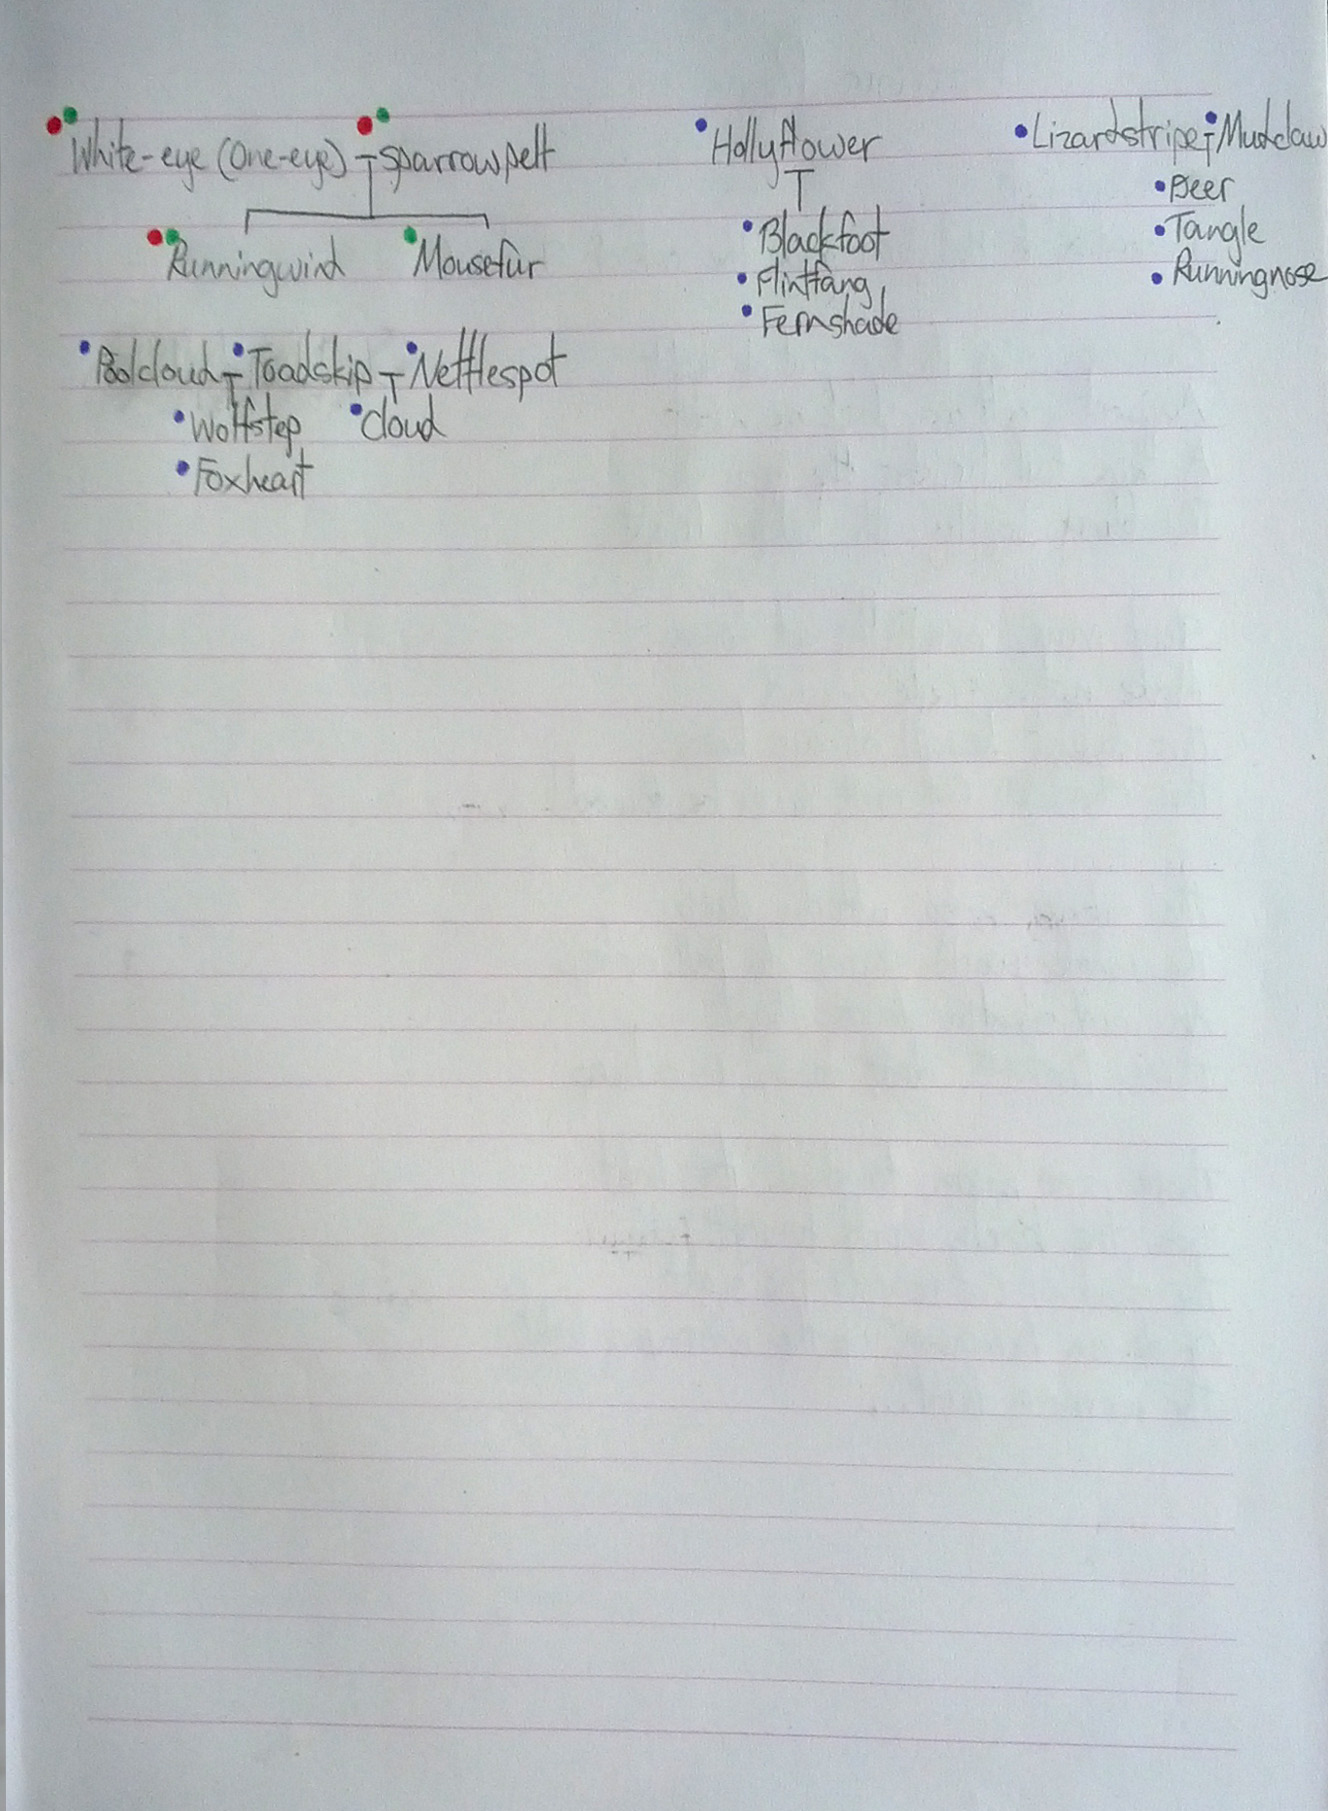 White-eye (One-eye) Sparrowpelt
Runningwind Mousefur
Hollyflower
Blackfoot
Flintfang
Fernshade
Lizardstripe Mudclaw
Deer
Tangle
Runningnose
Poolcloud Toadskip Nettlespot
Wolfstep Cloud
Foxheart